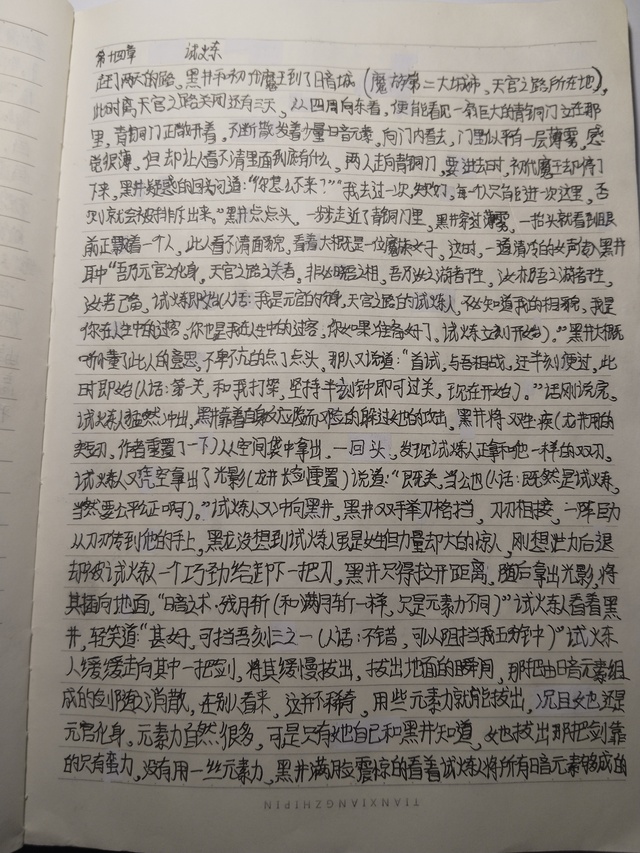 第十四章 试炼
赶了两天的路，黑井和初代魔王到了日暗城（魔族第二大城市，天官之路所在地），
此时离天官之路关闭还有三天，从四周向东看，便能看见一扇巨大的青铜门立在那
里，青铜门正散开着，不断散发着少量日音元素，向门内看去，门里似乎有一层薄雾，感
觉很薄，但却让人看不清里面到底有什么，两人走向青铜门，要进去时，初代魔王却停了
下来，黑井疑惑的回头问道：“你怎么不来？”“我去过一次，每一个人只能进一次这里，否
则就会被排斥出来。”黑井点点头，一步走近了青铜门里，黑井穿过薄雾，一抬头就看到眼
前正飘着一个人，此人看不清面容，看着大概还是一位魔族女子，这时，一道清冷的女声向黑井
耳中“吾乃元官之化身，天官之路之关者，非必晓吾之相，吾乃汝之游者于生，汝亦吾之游者于生，
汝若已备，试炼即始（人话：我是元官的化身，天官之路的试炼人，不必知道我的相貌，我是
你在人生中的过客，你也是我在人生中的过客，你如果准备好了，试炼立刻开始）。”黑井大概
听懂了此人的意思，不卑不亢的点了点头，那人又说道：“首试，与吾相战，迁半刻便过，此
时即始（人话：第一关，和我打架，坚持半刻钟即可过关，现在开始）。”话刚说完，
试炼人猛然冲出，黑井靠着自身反应险而又险的躲过她的攻击，黑井将双生·疾（尤井用的
类型刃，作者重置了一下）从空间袋中拿出，一回头，发现试炼人正拿和他一样的双刃，
试炼人又凭空拿出了光影（龙井长剑重置）说道：“既关，当公也（人话：既然是试炼，
当然要公平公正啊）。”试炼人又冲向黑井，黑井双手举刀格挡，刀刃相接，一阵巨力
从刀刃传到他的手上，黑龙没想到试炼人虽是女性但力量却大的惊人，刚想灶力后退
却被试炼人一个巧劲给卸下一把刀，黑井只得拉开距离，随后拿出光影，将
其插向地面。“日音之术·残月斩（和满月斩一样，只是元素力不同）”试炼人看着黑
井，轻笑道：“甚好，可挡吾刻三之一（人话：不错，可以阻挡我五分钟）”试炼
人缓缓走向其中一把剑，将其缓慢拔出，拔出地面的瞬间，那把由日音元素组
成的剑随之消散，在别人看来，这并不稀奇，用些元素力就能拔出，况且她还是
元官化身，元素力自然很多，可是只有她自己和黑井知道，她拔出那把剑靠
的只有蛮力，没有用一丝元素力，黑井满脸震惊的看着试炼人将所有日音元素构成的
TIANXIANGZHIPIN